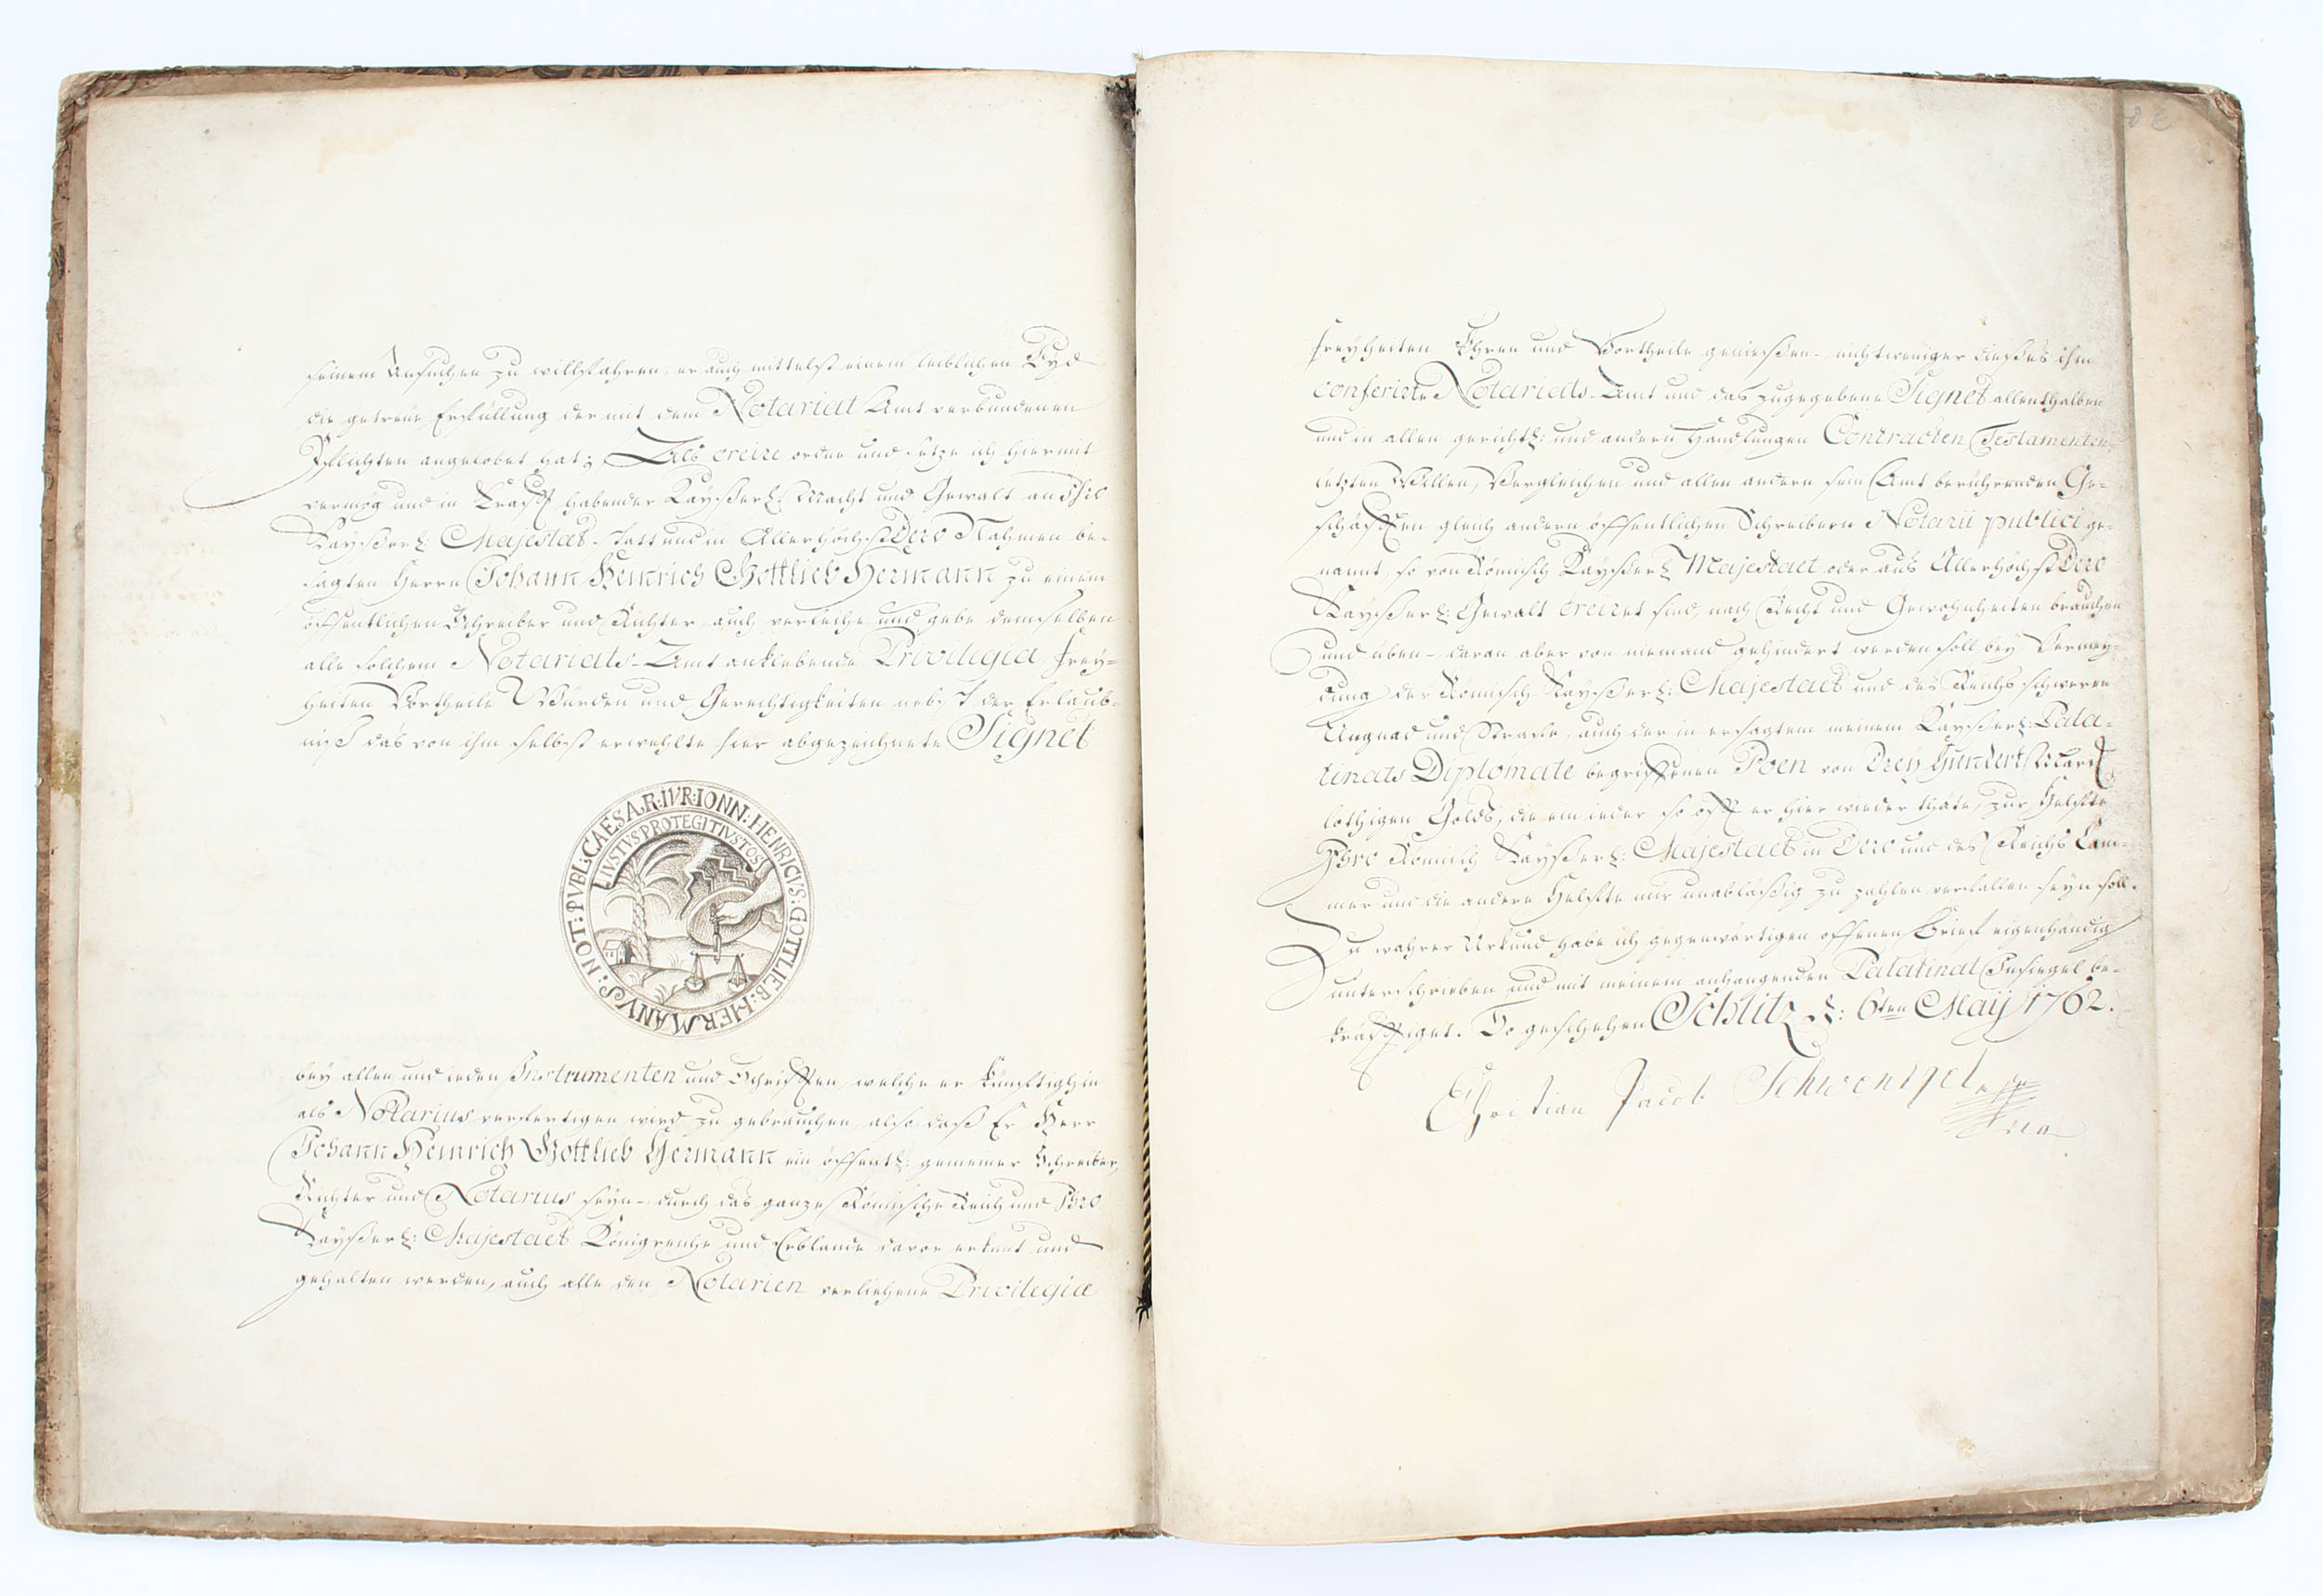 seinem Ansuchen zu willfahren, er auch mittelst einem leiblichen Eyd
die getreue Erfüllung der mit dem Notariat Amt verbundenen
Pflichten angelobet hat; Als creire ordne und setze ich hiermit
vermög und in Krafft habender Kayßerl: Macht und Gewalt an Ihro
Kayßerl: Majestæt statt und in Allerhöchst Dero Nahmen be-
sagten Herrn Johann Heinrich Gottlieb Hermann zu einem
öffentlichen Schreiber und Richter, auch verleihe und gebe demselben
alle solchem Notariats-Amt anklebende Privilegia, Frey=
heiten Vortheile Würden und Gerechtigkeiten nebst der Erlaub-
niß das von ihm selbst erwehlte hier abgezeichnete Signet
NOT: PVBL: CAESAR: IVR: IONN: HENRICVS: GOTTLIEB: HERMANVS:
IVSTVS PROTEGIT IVSTOS
bey allen und ieden Instrumenten und Schrifften, welche er künfftighin
als Notarius verfertigen wird zu gebrauchen, also daß Er Herr
Johann Heinrich Gottlieb Hermann ein öffentl: gemeiner Schreiber,
Richter und Notarius seyn- durch das ganze Römische Reich und Ihro
Kayßerl: Majestaet Königreiche und Erblande davor erkent und
gehalten werden, auch alle den Notarien verliehene Privilegia
8 E
Freyheiten Ehren und Vortheile genießen- nicht weniger dießes ihm
conferirte Notariats-Amt und das zugegebene Signet allenthalben
und in allen gerichtl: und andern Handlungen Contracten Testamenten
letzten Willen, Vergleichen und allen andern sein Amt berührenden Ge-
schäfften gleich andern öffentlichen Schreibern Notarii publici ge-
nannt, so von Römisch Kayßerl Majestaet oder aus Allerhöchst Dero
Kayßerl: Gewalt creiret sind, nach Recht und Gewohnheiten brauchen
und üben- daran aber von niemand gehindert werden soll bey Vermey-
dung der Römisch-Kayßerl: Majestaet und des Reichs schweren
Ungnad und Strafe, auch der in ersagtem meinem Kayßerl: Pala-
tinats Diplomate begriffenen Poen von Drey Hundert Marck
löthigen Golds, die ein ieder so offt er hier wieder thäte, zur Helffte
Ihro Römisch Kayßerl: Majestaet in Dero und des Reichs Cam-
mer und die andere Helffte mir unabläßig zu zahlen verfallen seyn soll.
Zu wahrer Urkund habe ich gegenwärtigen offenen Brief eigenhändig
unterschrieben und mit meinem anhangenden Palatinat Insiegel be-
kräfftiget. So geschehen Schlitz d: 6ten Maij 1762.
Christian Jacob Schwentzel